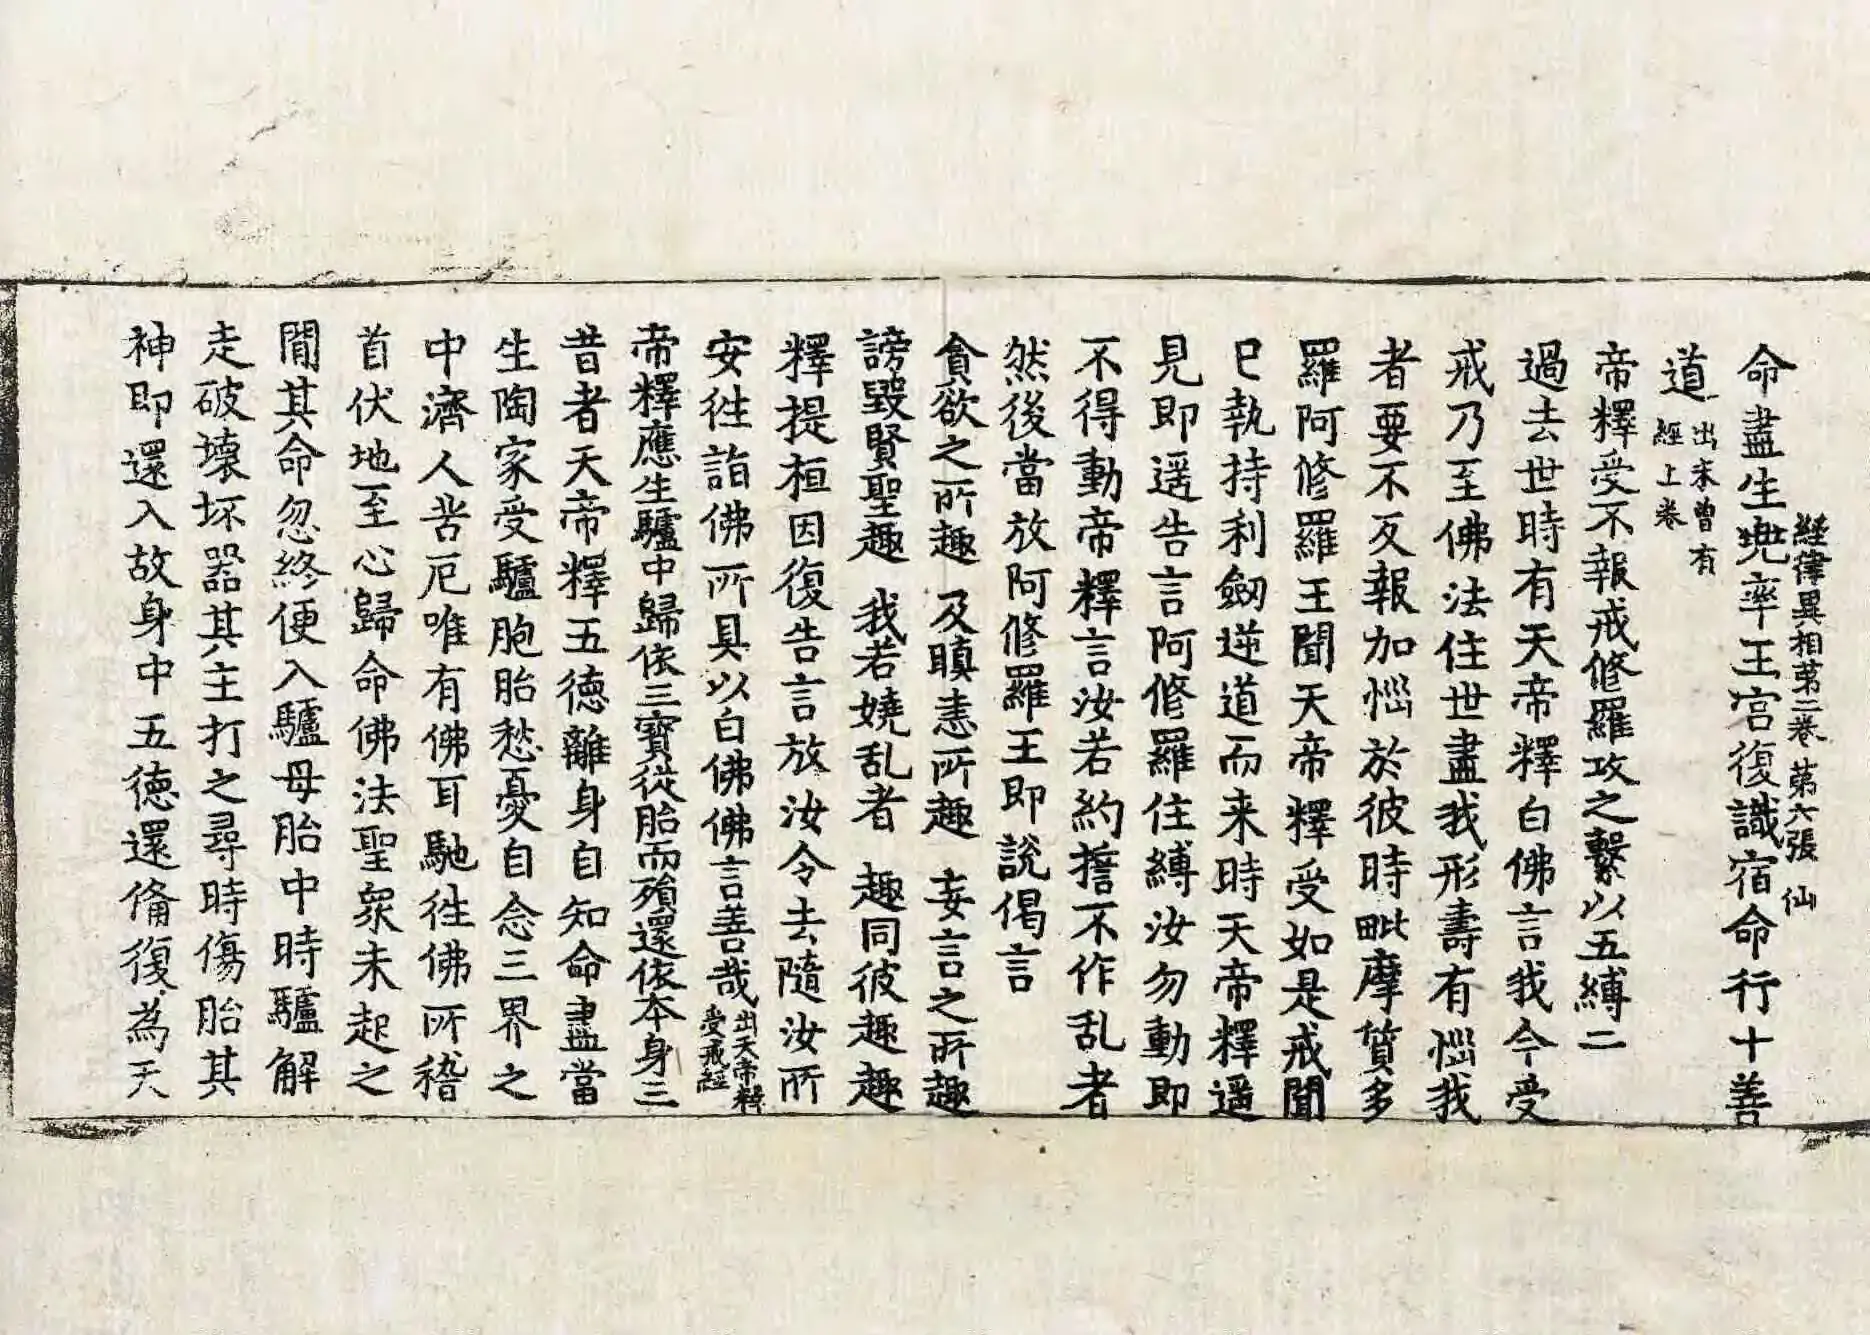 經律異相苐二卷 苐六張 仙
命盡生兠率王宫復識宿命行十善
道 出未曾有經上卷
帝釋受不報戒修羅攻之繫以五縛二
過去世時有天帝釋白佛言我今受
戒乃至佛法住世盡我形壽有惱我
者要不反報加惱於彼時毗摩質多
羅阿修羅王聞天帝釋受如是戒聞
已執持利劒逆道而来時天帝釋遥
見即遥告言阿修羅住縛汝勿動即
不得動帝釋言汝若約誓不作乱者
然後當放阿修羅王即説偈言
貪欲之所趣 及瞋恚所趣 妄言之所趣
謗毀賢聖趣 我若嬈乱者 趣同彼趣趣
釋提桓因復告言放汝令去隨汝所
安徃詣佛所具以白佛佛言善哉 出天帝釋受戒經
帝釋應生驢中歸依三寶從胎而殞還依本身三
昔者天帝釋五徳離身自知命盡當
生陶家受驢胞胎愁憂自念三界之
中濟人苦厄唯有佛耳馳徃佛所稽
首伏地至心歸命佛法聖衆未起之
間其命忽終便入驢母胎中時驢解
走破壊坏器其主打之尋時傷胎其
神即還入故身中五徳還俻復為天